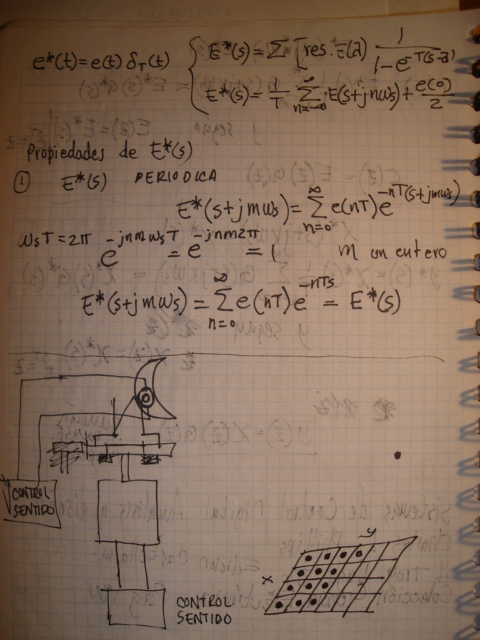 e*(t)=e(t) δ_T(t)
E*(s)=Σ [res. E(λ) 1/(1-e^{-T(s-λ)})
E*(s)=1/T Σ_{n=-∞}^{∞} E(s+jnωs)+ e(0)/2
Propiedades de E*(s)
① E*(s) PERIODICA
E*(s+jmωs)=Σ_{n=0}^{∞} e(nT)e^{-nT(s+jmωs)}
ωsT=2π e^{-jnmωsT} = e^{-jnm2π} = 1 m un entero
E*(s+jmωs)=Σ_{n=0}^{∞} e(nT)e^{-nTs} = E*(s)
CONTROL
SENTIDO
CONTROL
SENTIDO
x
y